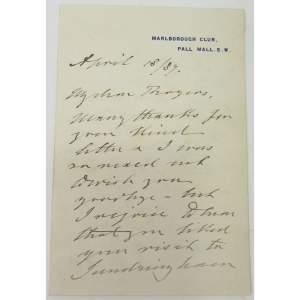 MARLBOROUGH CLUB,
PALL MALL. S.W.
April 18/89.
My dear
Many thanks for
your kind
letter & I was
so vexed not
to wish you
goodbye – but
I rejoice to hear
that you liked
your visit to
Sandringham